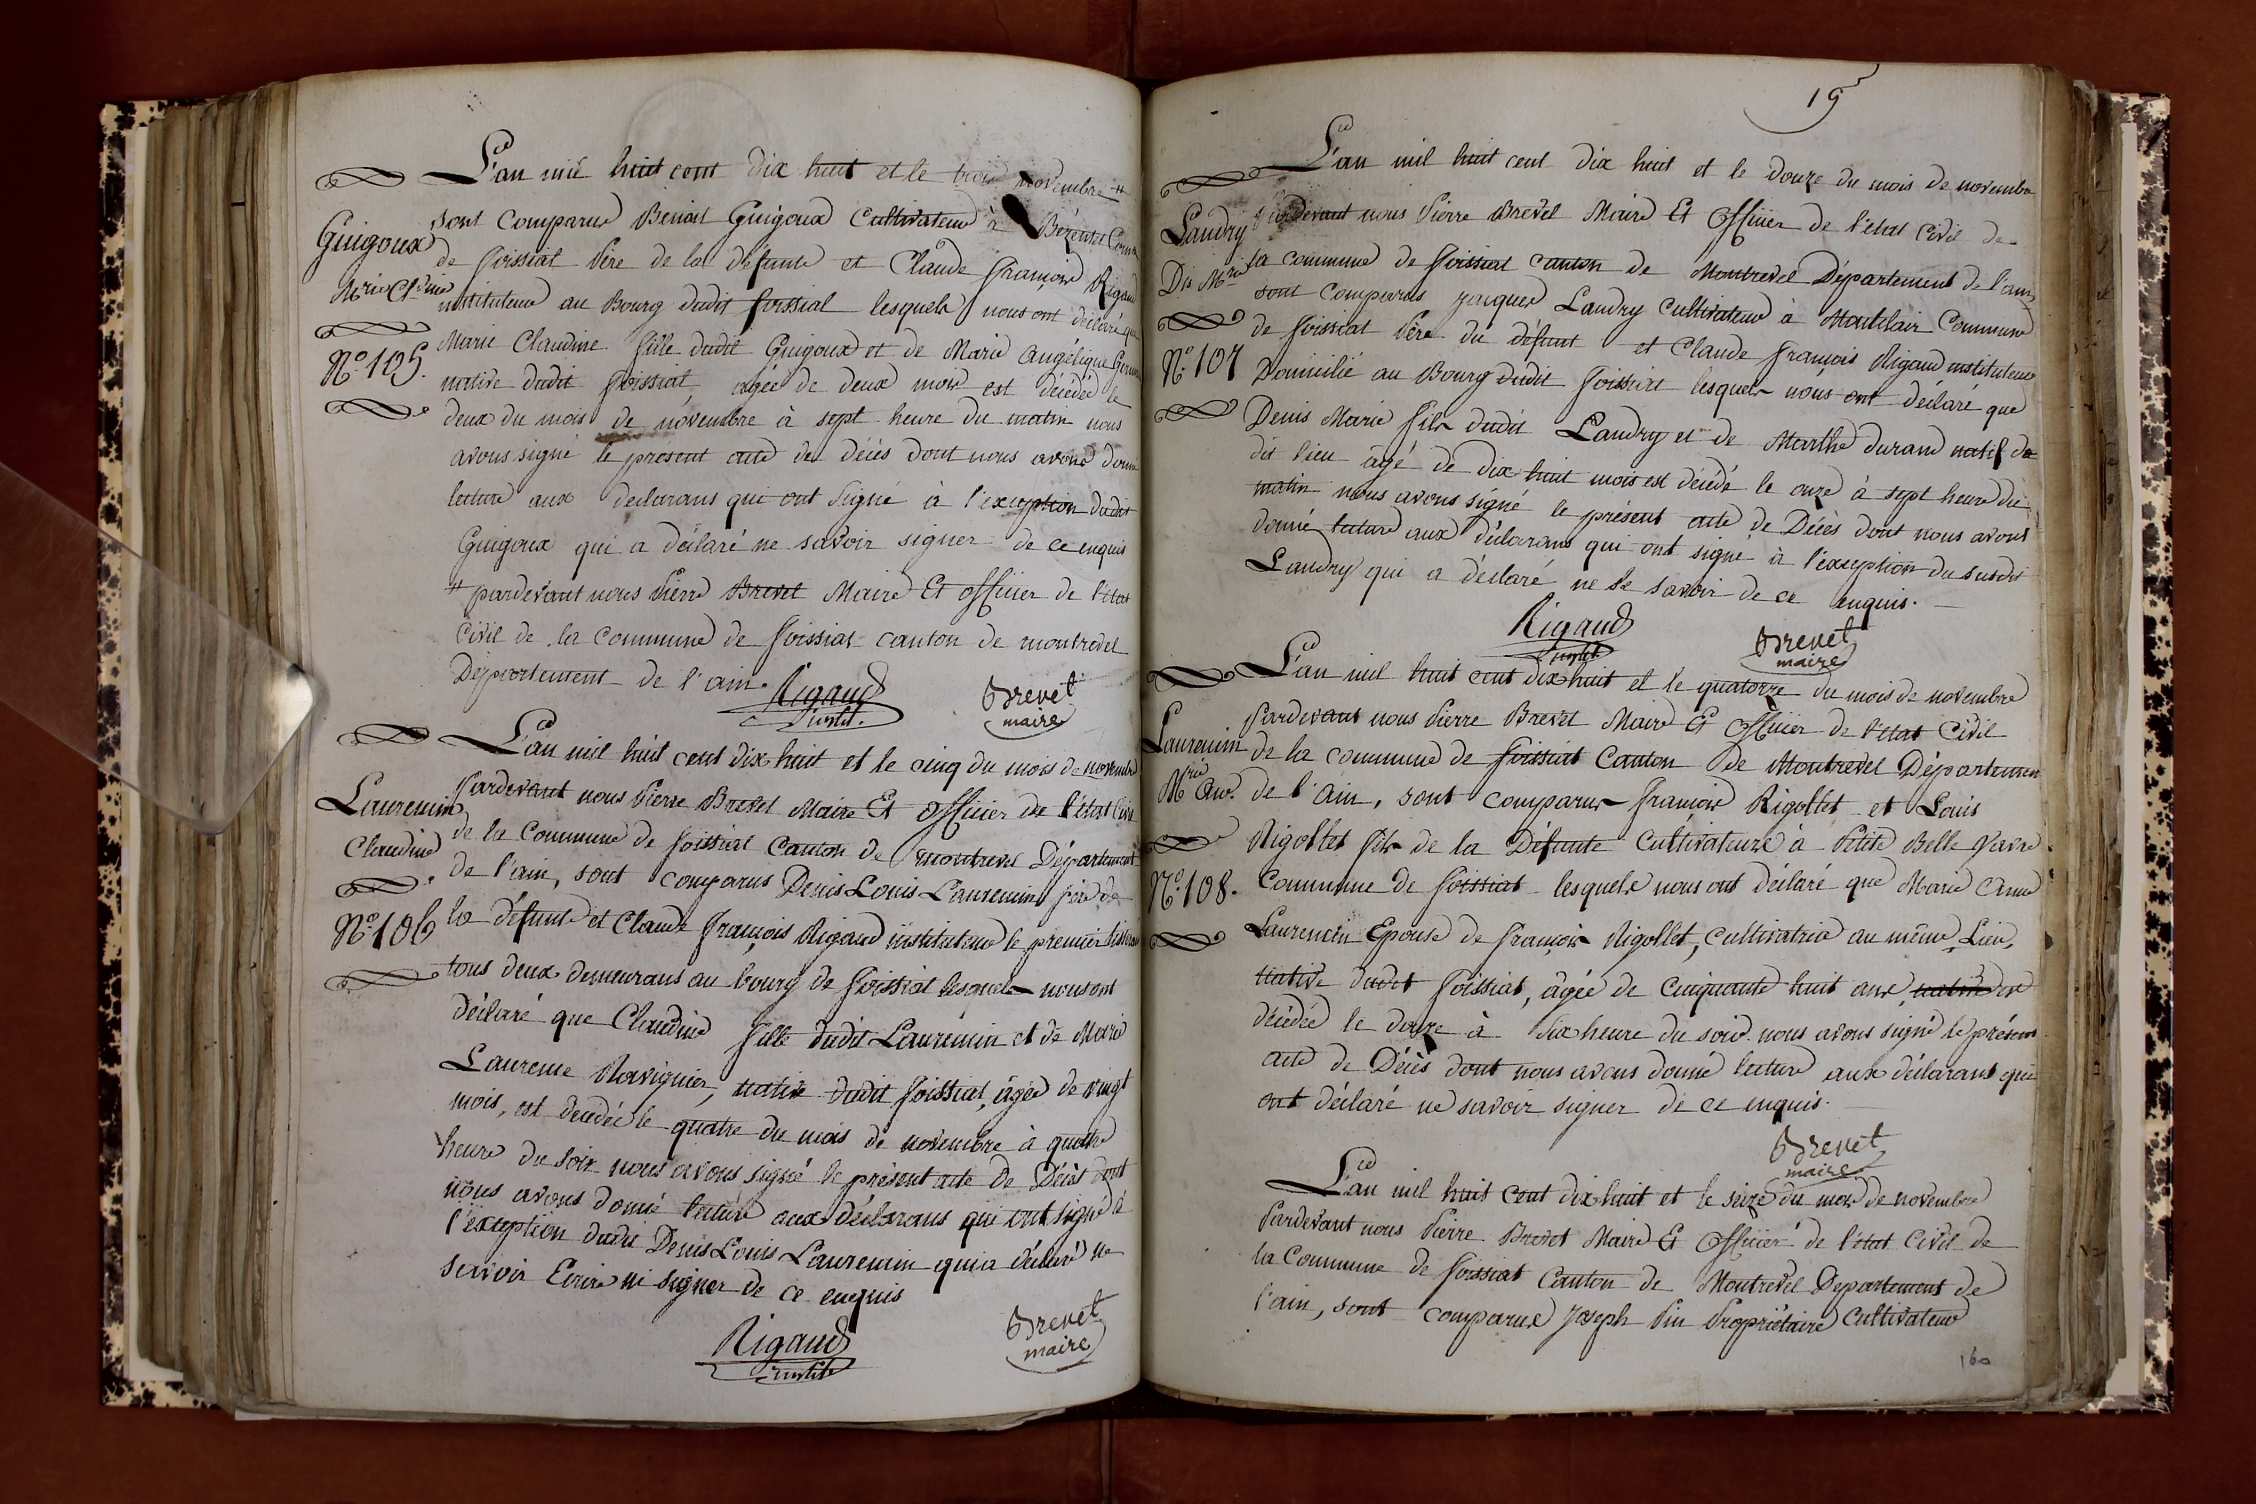 L'an mil huit cent dix huit et le trois novembre #
sont comparus Benoit Guigoux Cultivateur à Bézentet Comm
de foissiat Père de la défunte et Claude françois Rigaud
instituteur au Bourg dudit foissiat lesquels nous ont déclaré que
Marie Claudine fille dudit Guigoux et de Marie Angélique
native dudit foissiat, agée de deux mois est décédée le
deux du mois de novembre à sept heure du matin nous
avons signé le présent acte de décès dont nous avons donné
lecture aux déclarans qui ont signé à l'exception dudit
Guigoux qui a déclaré ne savoir signer de ce enquis
# pardevant nous Pierre Brevet Maire Et officier de l'état
Civil de la Commune de foissiat canton de montrevel
Département de l'ain.
Rigaud
instit.
Brevet
maire
Guigoux
Mrie Cldine
No. 105.
L'an mil huit cent dix huit et le cinq du mois de novembre
Pardevant nous Pierre Brevet Maire Et officier de l'état Civil
de la Commune de foissiat Canton de montrevel Département
de l'ain, sont comparus Denis Louis Laurencin père de
la défunte et Claude françois Rigaud instituteur le premier tisseran
tous deux demeurans au bourg de foissiat lesquels nous ont
déclaré que Claudine fille dudit Laurencin et de Marie
Laurence Ravignier, native dudit foissiat, âgée de vingt
mois, est décédée le quatre du mois de novembre à quatre
heure du soir nous avons signé le présent acte de Décès dont
nous avons donné lecture aux déclarans qui ont signé à
l'exception dudit Denis Louis Laurencin qui a déclaré ne
savoir Ecrire ni signer de ce enquis
Rigaud
instit
Brevet
maire
Laurencin
Claudine
No. 106
19
L'an mil huit cent dix huit et le douze du mois de novembre
Pardevant nous Pierre Brevet Maire Et Officier de l'état Civil de
la commune de foissiat canton de Montrevel Département de l'ain,
sont comparus jacques Landry cultivateur à Montclair Commune
de foissiat Père du défunt et Claude françois Rigaud instituteur
Domicilié au Bourg dudit foissiat lesquels nous ont déclaré que
Denis Marie fils dudit Landry et de Marthe durand natif du
dit lieu âgé de dix huit mois est décédé le onze à sept heure du
matin nous avons signé le présent acte de Décès dont nous avons
donné lecture aux déclarans qui ont signé à l'exception du susdit
Landry qui a déclaré ne le savoir de ce enquis.
Rigaud
instit
Brevet
maire
Landry
Dis Mrie
No. 107
L'an mil huit cent dix huit et le quatorze du mois de novembre
Pardevant nous Pierre Brevet Maire Et officier de l'état Civil
de la commune de foissiat Canton de Montrevel Départemen
de l'Ain, sont comparus françois Rigollet et Louis
Rigollet fils de la Défunte Cultivateurs à Petite Belle Vavre
Commune de foissiat lesquels nous ont déclaré que Marie Anne
Laurencin Epouse de françois Rigollet, cultivatrice au même Lieu,
native dudit foissiat, âgée de Cinquante huit ans, est
décédée le douze à dix heure du soir nous avons signé le présent
acte de Décès dont nous avons donné lecture aux déclarans qui
ont déclaré ne savoir signer de ce enquis.
Brevet
maire
Laurencin
Mrie Ane.
No. 108.
L'an mil huit cent dix huit et le seize du mois de novembre
Pardevant nous Pierre Brevet Maire Et Officier de l'état Civil de
la Commune de foissiat Canton de Montrevel Département de
l'ain, sont comparus Joseph Pin Propriétaire Cultivateur
160